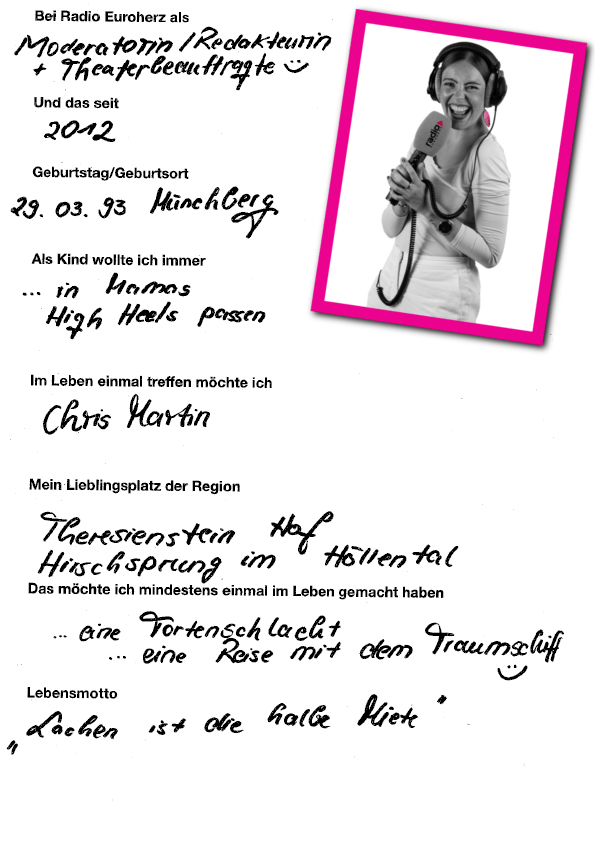 Bei Radio Euroherz als
Moderatorin / Redakteurin
+ Theaterbeauftragte
Und das seit
2012
Geburtstag/Geburtsort
29. 03. 93 Münchberg
Als Kind wollte ich immer
... in Mamas
High Heels passen
radio
Im Leben einmal treffen möchte ich
Chris Martin
Mein Lieblingsplatz der Region
Theresienstein Hof
Hirschsprung im Höllental
Das möchte ich mindestens einmal im Leben gemacht haben
... eine Tortenschlacht
... eine Reise mit dem Traumschiff
Lebensmotto
„Lachen ist die halbe Miete"